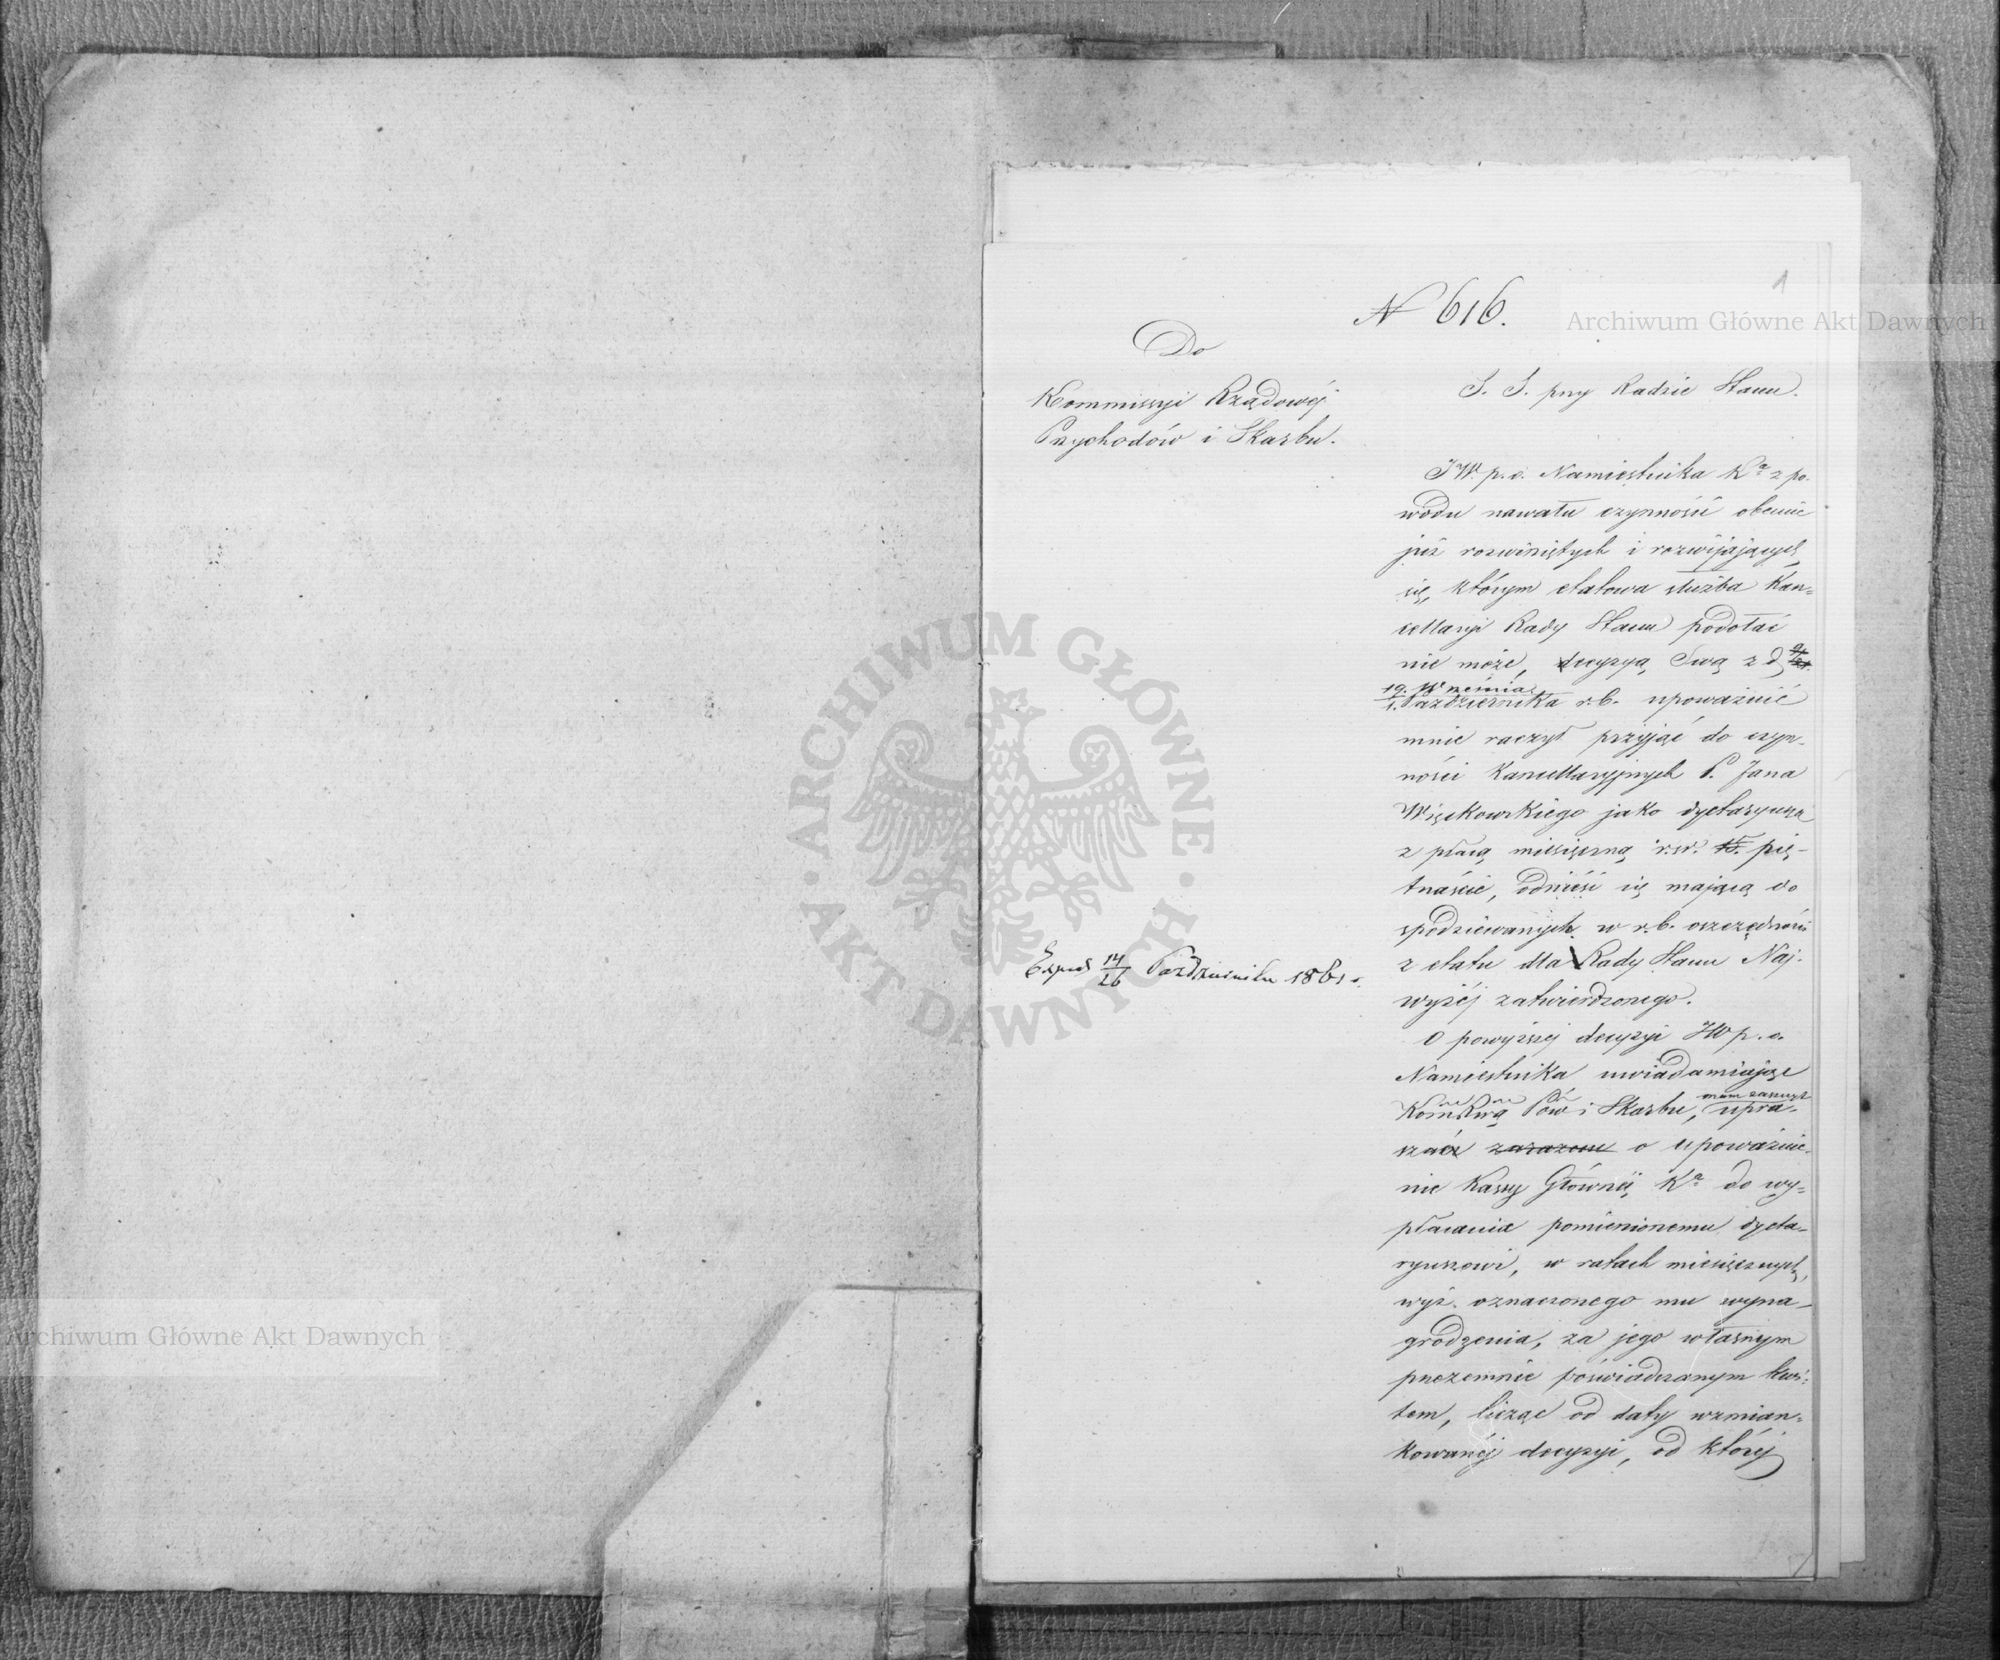 1
N 616.
Do
Kommissyi Rządowéj
Przychodów i Skarbu.
S. S. przy Radzie Stanu.
JW. p. o. Namiestnika Kr. z po-
wodu nawału czynności obecnie
już rozwiniętych i rozwijających
się, którym etatowa służba Kan-
cellaryi Rady Stanu podołać
nie może, decyzyą Swą z d.
19. Września
1. Października r.b. upoważnić
mnie raczył przyjąć do czyn-
ności Kancellaryjnych P. Jana
Więckowskiego jako dyetaryusza
z płacą miesięczną r.sr. 15. pię-
tnaście, odnieść się mającą do
spodziewanych w r.b. oszczędności
z etatu dla Rady Stanu Naj-
wyżéj zatwierdzonego.
O powyższéj decyzyi JW p. o.
Namiestnika uwiadamiając
Kommką Rwą Pów i Skarbu, mam zaszczyt upra-
szać zarazem o upoważnie-
nie Kassy Głównéj Kr. do wy-
płacania pomienionemu dyeta-
ryuszowi, w ratach miesięcznych,
wyż. oznaczonego mu wyna-
grodzenia, za jego własnym
przezemnie poświadczanym kwi-
tem, licząc od daty wzmian-
kowanéj decyzyi, od któréj
Exped 14/26 Października 1861 r.
Archiwum Główne Akt Dawnych
Archiwum Główne Akt Dawnych
ARCHIWUM GŁÓWNE · AKT DAWNYCH ·